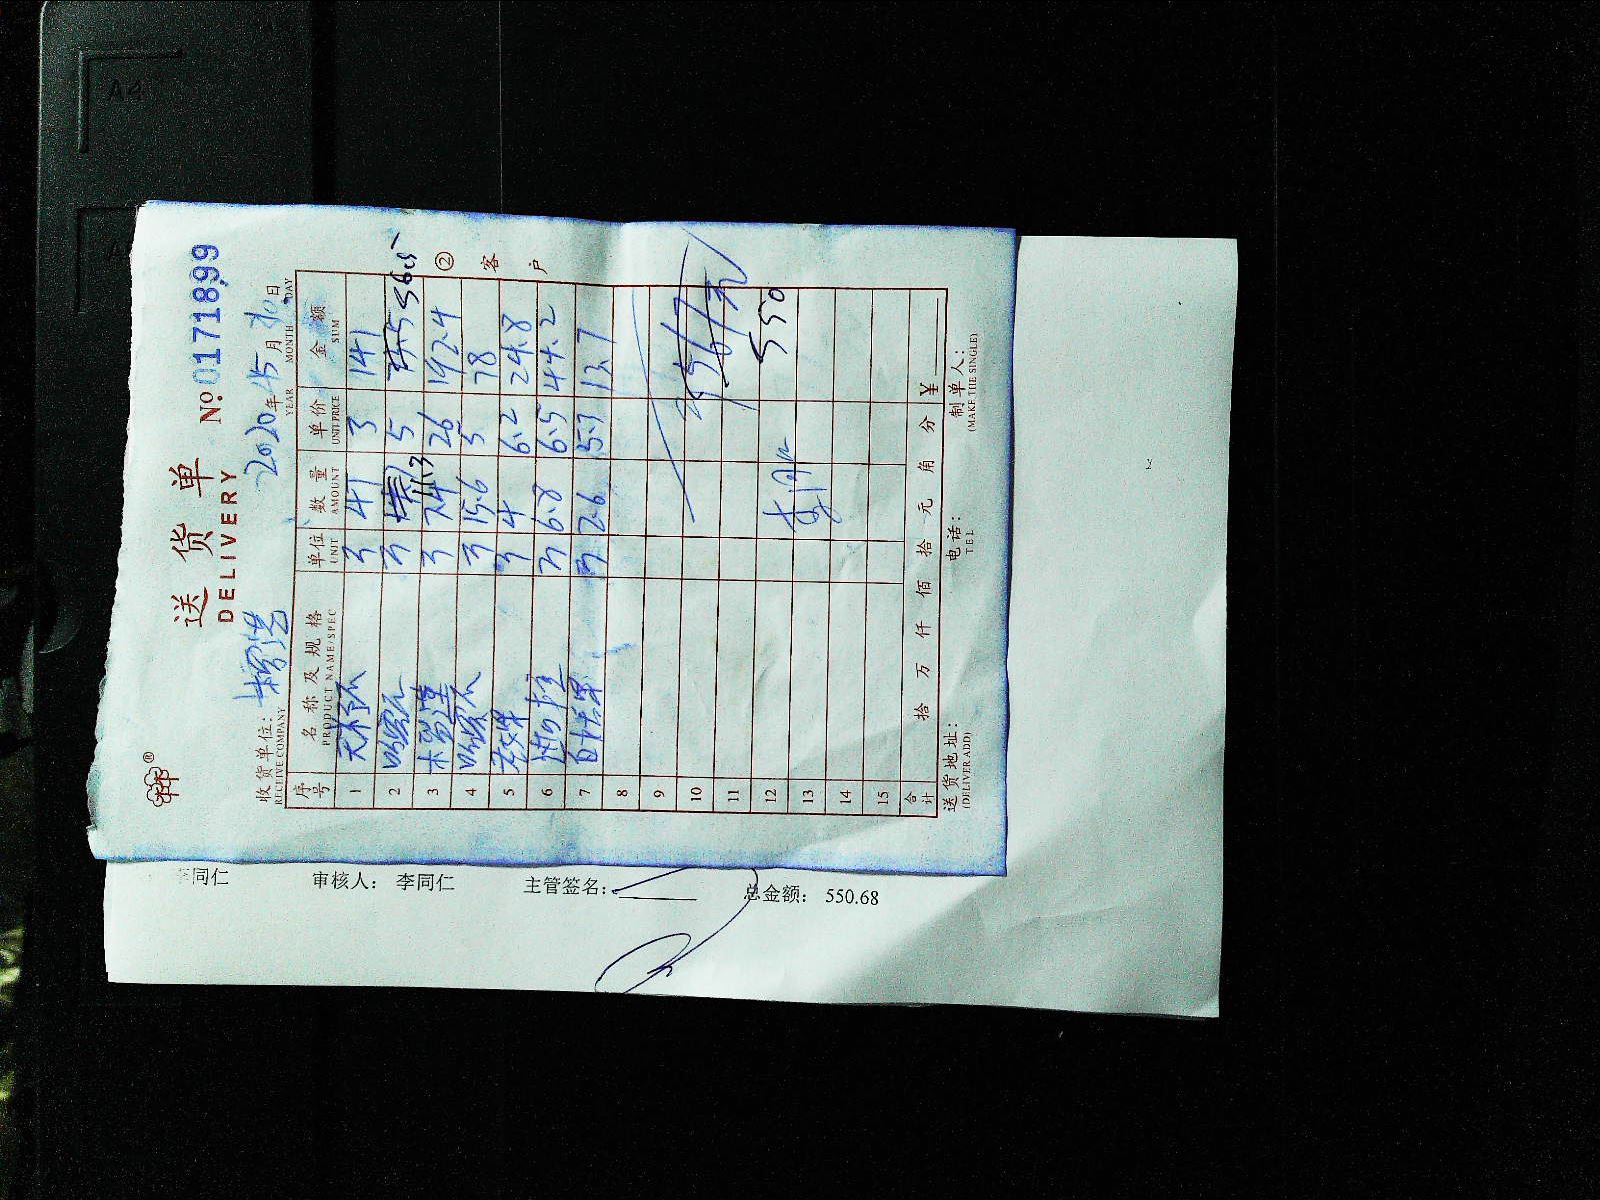 送货单
DELIVERY
№ 0171899
收货单位:
RECEIVE COMPANY
2020年 5月 30日
YEAR MONTH DAY
序号 名称及规格 单位 数量 单价 金额
PRODUCT NAME/SPEC UNIT AMOUNT UNIT PRICE SUM
1 3 141
2 哈密瓜 5 56.5
3 26 192.4
4 哈密瓜 15.6 5 78
5 4 6.2 24.8
6 6.8 6.5 44.2
7 2.6 5.3 13.7
8
9
10
11
12 550
13
14
15
合计 拾 万 仟 佰 拾 元 角 分 ¥
送货地址: 电话: 制单人:
(DELIVER ADD) TEL (MAKE THE SINGLE)
② 客户
A4
同仁 审核人: 李同仁 主管签名: 总金额: 550.68